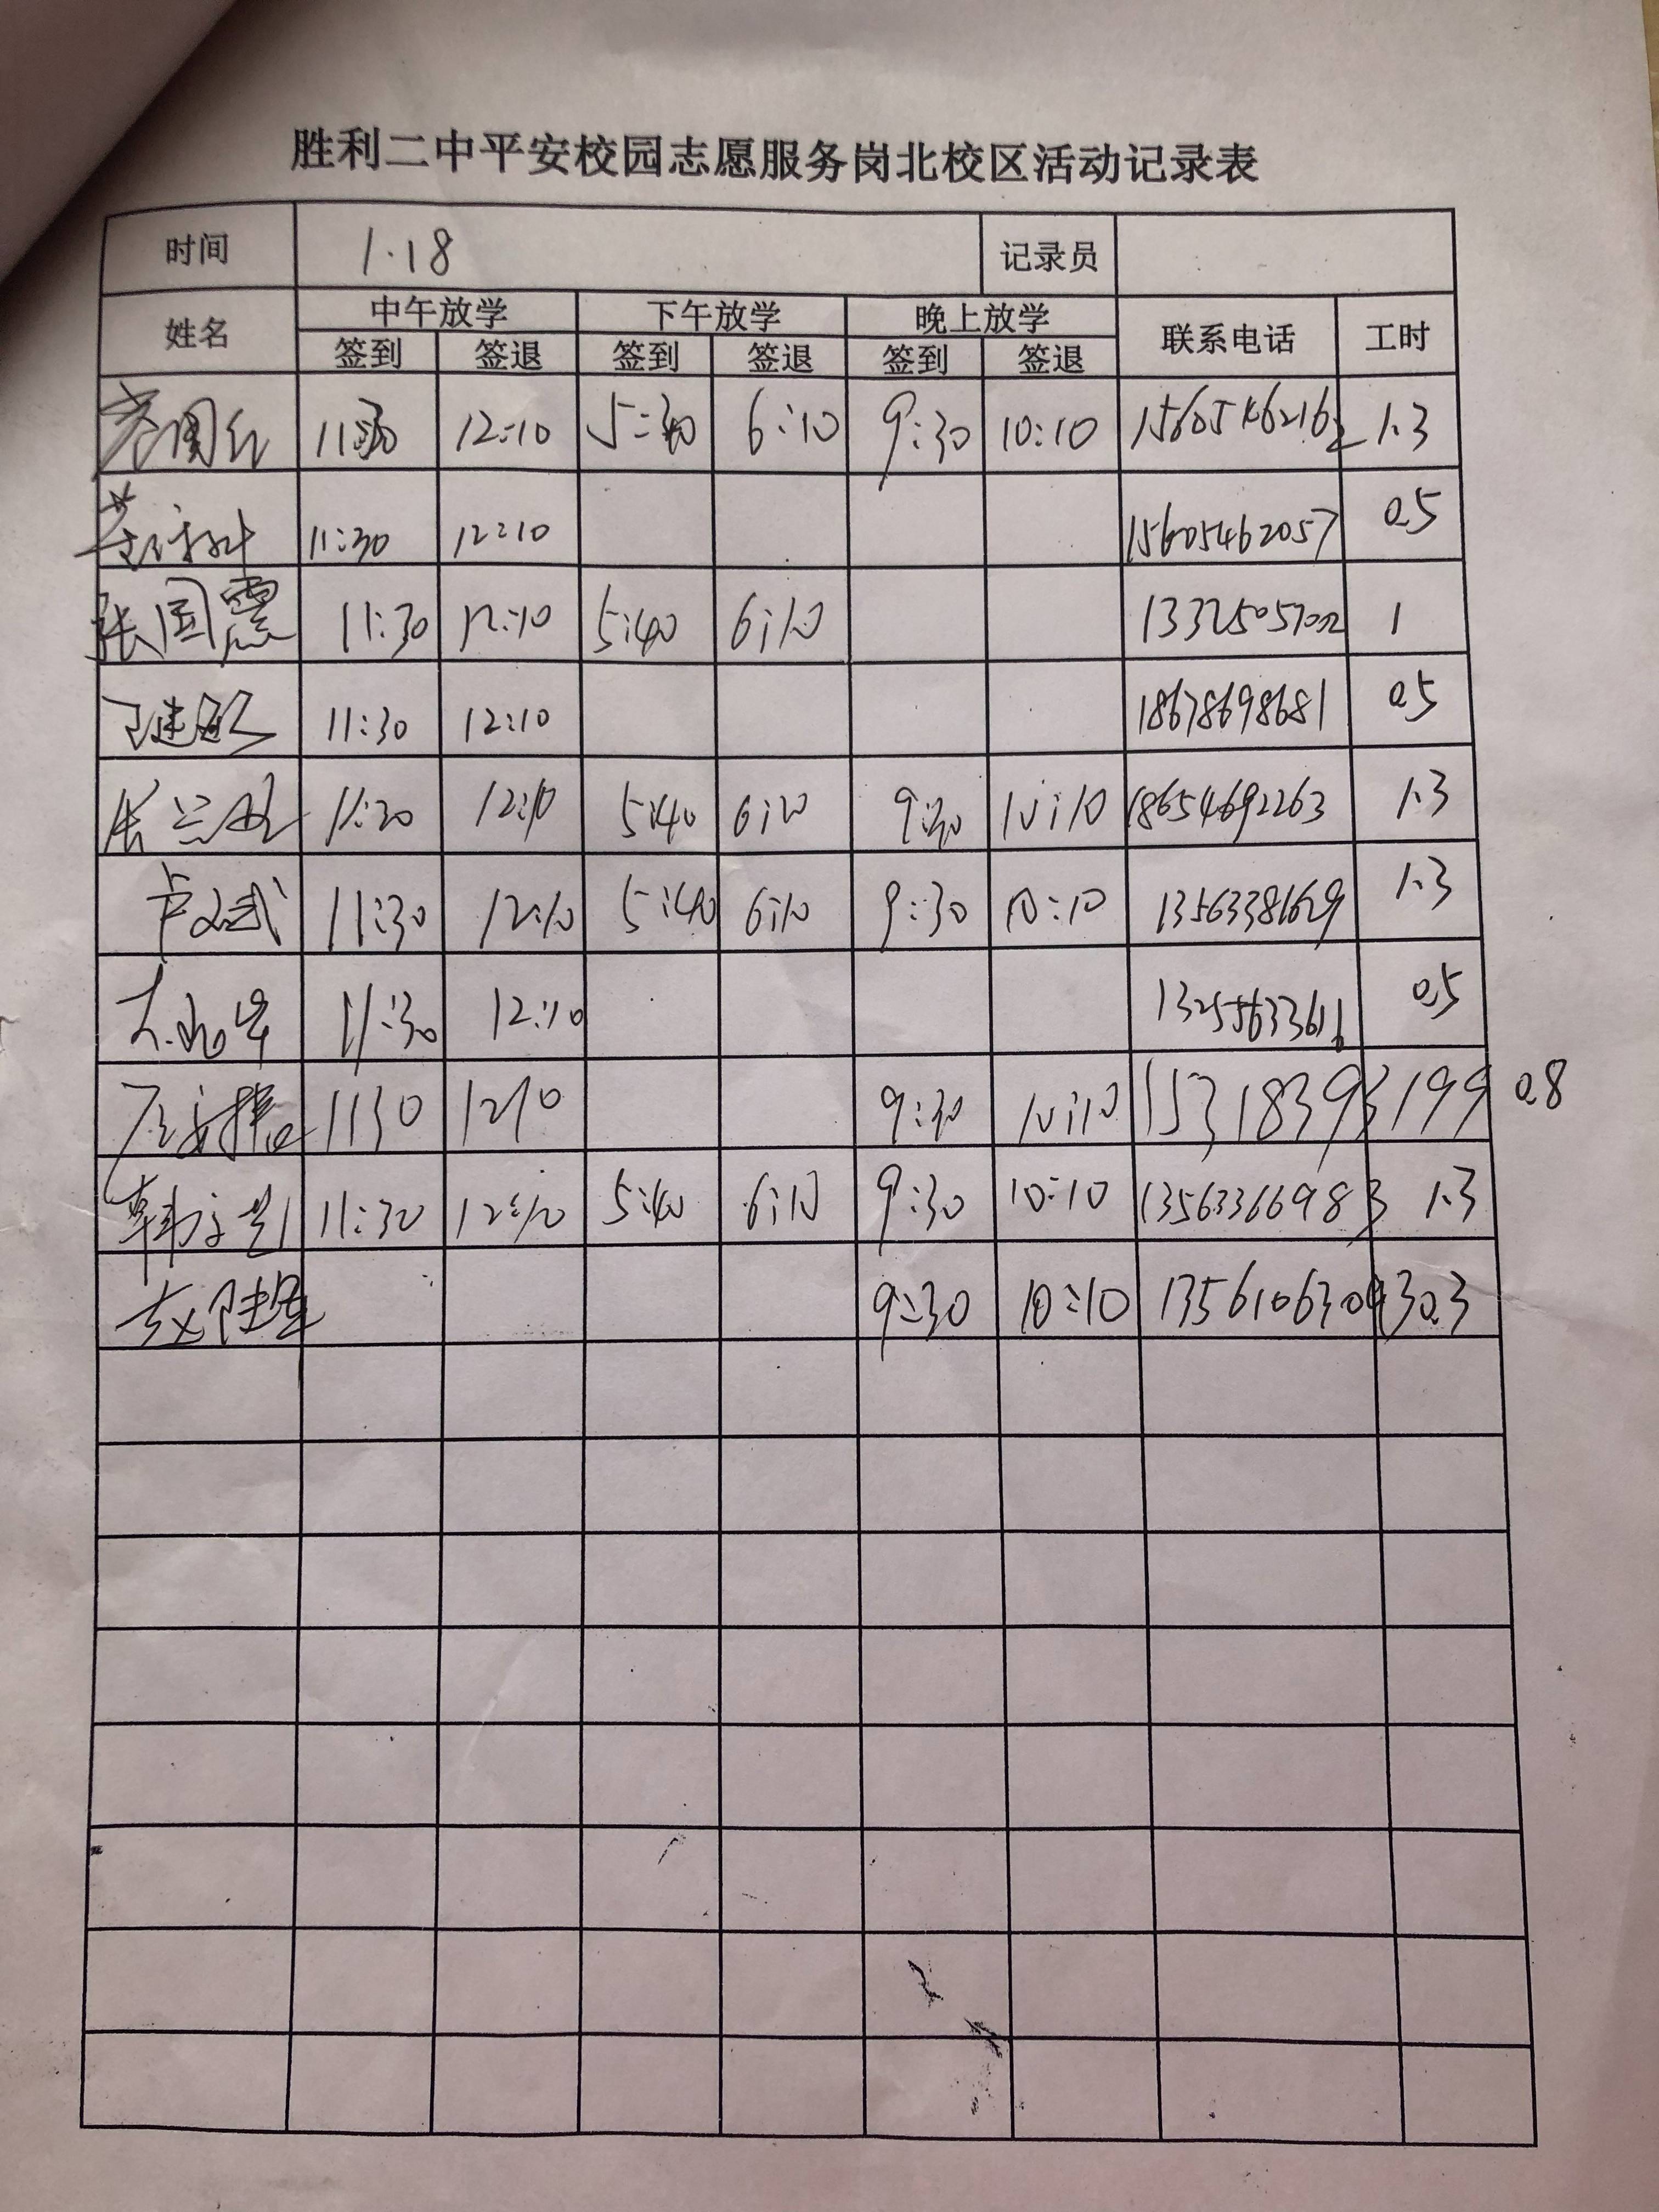 胜利二中平安校园志愿服务岗北校区活动记录表
时间 1.18 记录员
姓名 中午放学 下午放学 晚上放学 联系电话 工时
签到 签退 签到 签退 签到 签退
11:30 12:10 5:40 6:10 9:30 10:10 15605462162 1.3
11:30 12:10 15605462057 0.5
张国震 11:30 12:10 5:40 6:10 1
11:30 12:10 18678698681 0.5
11:30 12:10 5:40 6:10 9:30 10:10 18654692263 1.3
卢文武 11:30 12:10 5:40 6:10 9:30 10:10 13563381629 1.3
11:30 12:10 0.5
1130 1210 9:30 10:10 15318393199 0.8
11:30 12:10 5:40 6:10 9:30 10:10 13563366983 1.3
9:30 10:10 13561063043 0.3